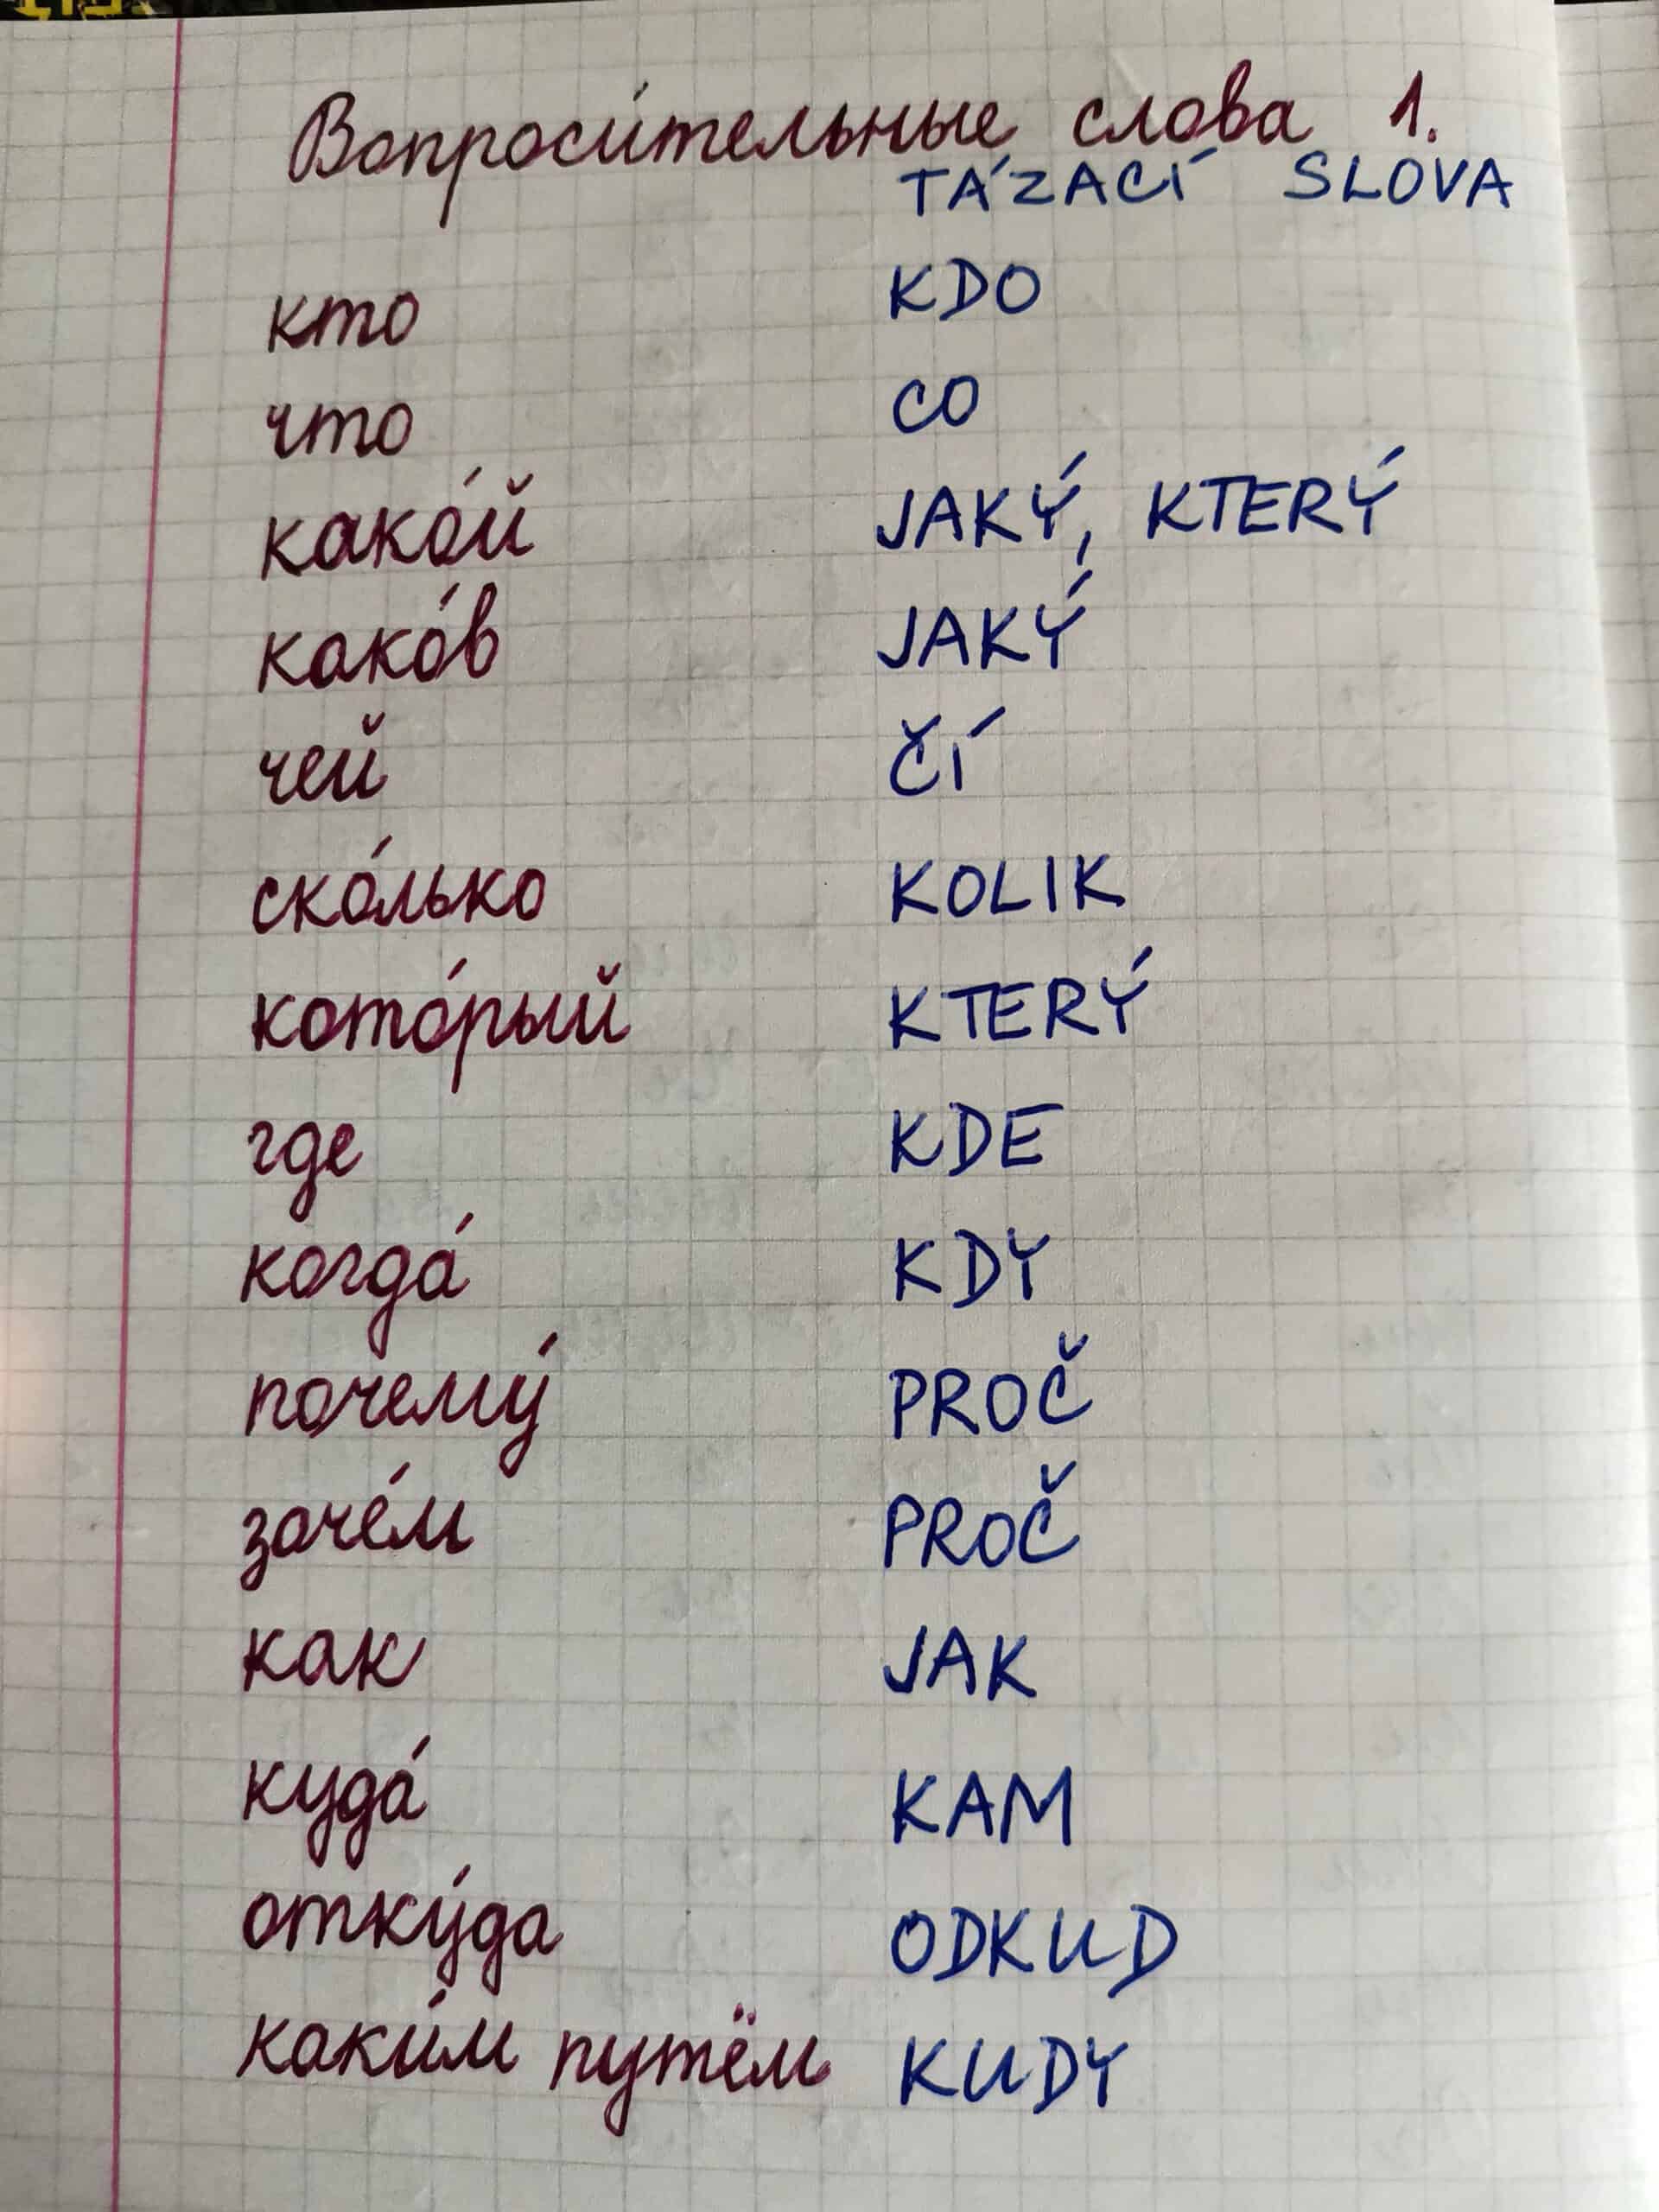 Вопроси́тельные слова 1.
TÁZACÍ SLOVA
кто KDO
что CO
како́й JAKÝ, KTERÝ
како́в JAKÝ
чей ČÍ
ско́лько KOLIK
кото́рый KTERÝ
где KDE
когда́ KDY
почему́ PROČ
заче́м PROČ
как JAK
куда́ KAM
отку́да ODKUD
каки́м путём KUDY